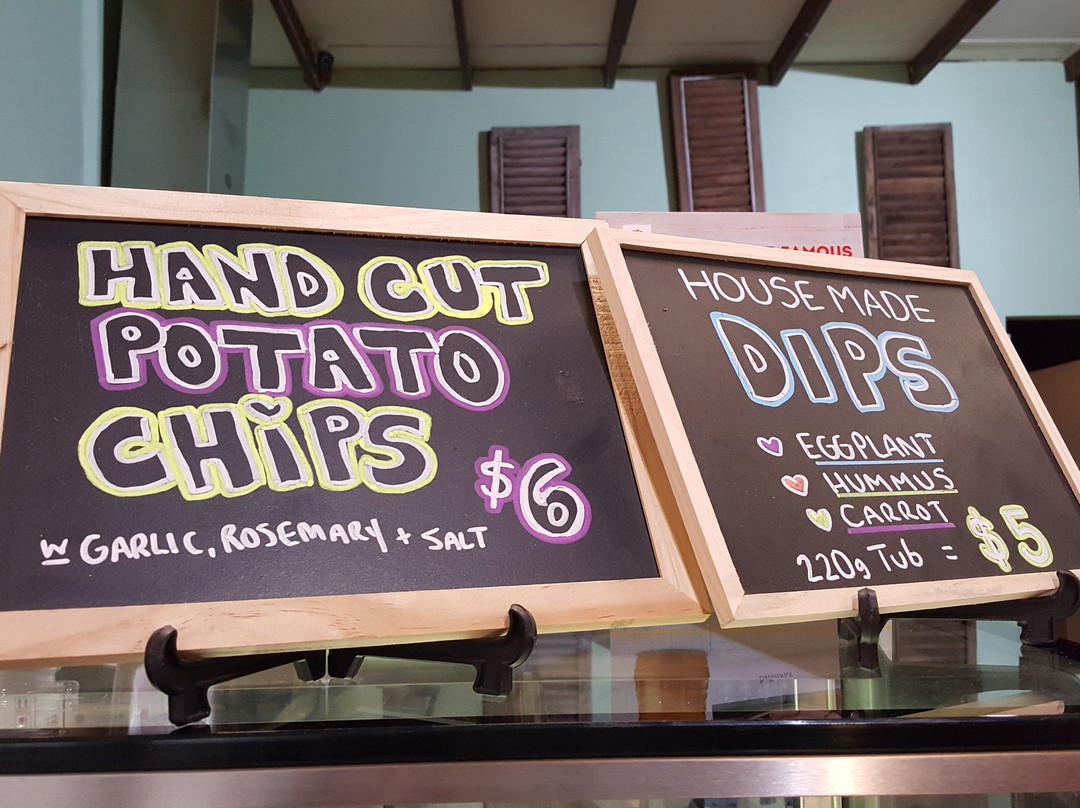 HAND CUT
POTATO
CHiPS
$6
W GARLIC, ROSEMARY + SALT
FAMOUS
HOUSE MADE
DIPS
EGGPLANT
HUMMUS
CARROT
220g Tub = $5